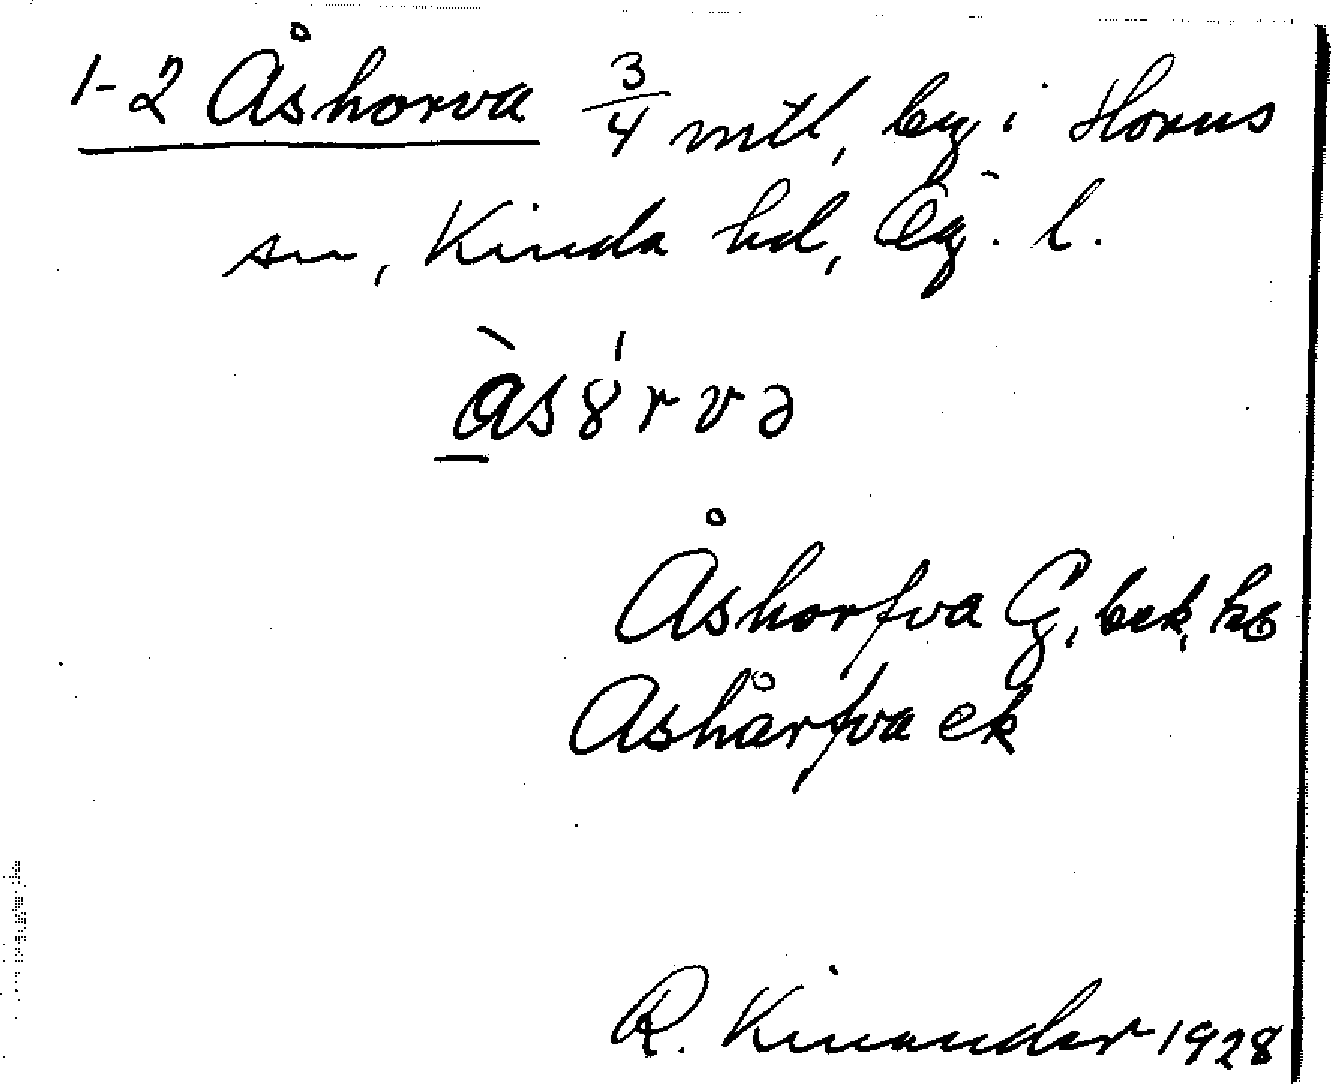 1-2 Åshorva 3/4 mtl, by i Horns
sn, Kinda hd, Ög. l.
Åshorfva G, bek,
Ashårfva ek
R. Kinander 1928